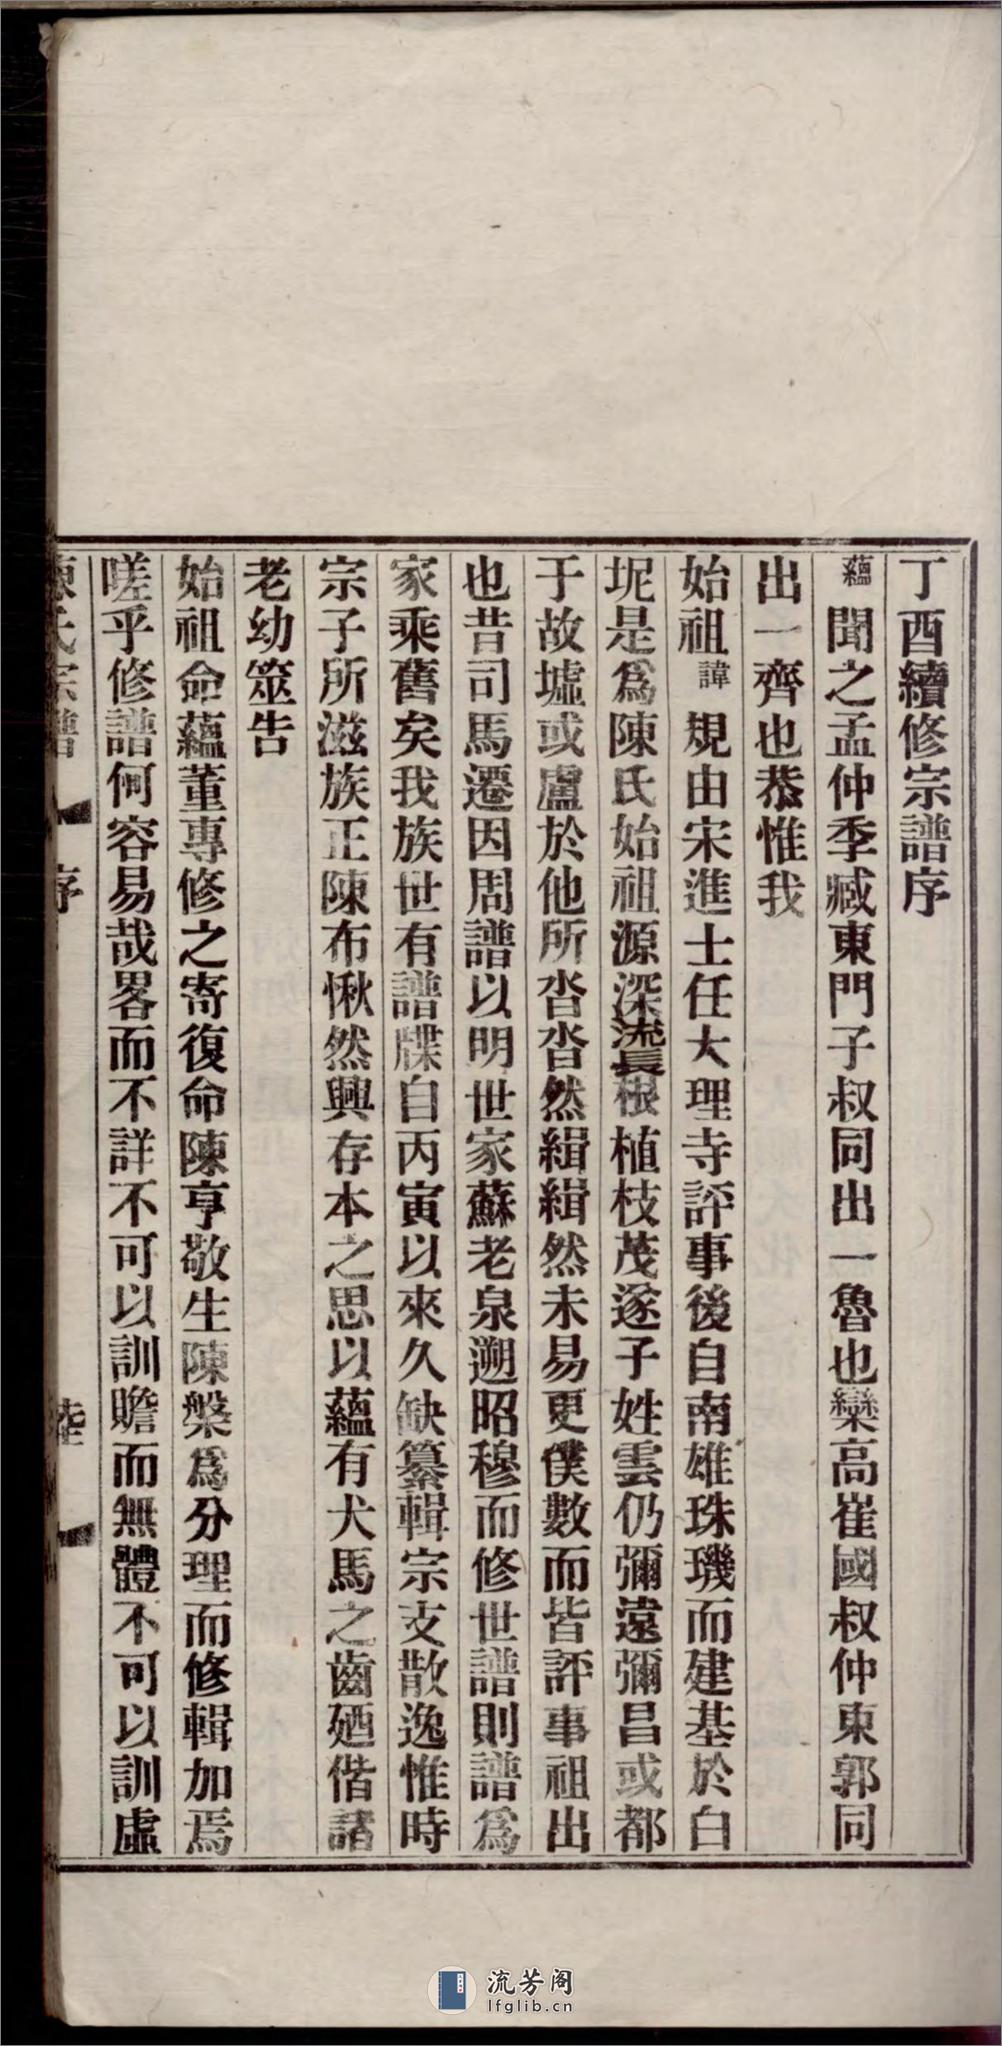 丁酉續修宗譜序
蘊聞之孟仲季臧東門子叔同出一魯也欒高崔國叔仲東郭同
出一齊也恭惟我
始祖諱規由宋進士任大理寺評事後自南雄珠璣而建基於白
坭是爲陳氏始祖源深流長根植枝茂遂子姓雲仍彌遠彌昌或都
于故墟或盧於他所沓沓然緝緝然未易更僕數而皆評事祖出
也昔司馬遷因周譜以明世家蘇老泉遡昭穆而修世譜則譜爲
家乘舊矣我族世有譜牒自丙寅以來久缺纂輯宗支散逸惟時
宗子所滋族正陳布愀然興存本之思以蘊有犬馬之齒廼偕諸
老幼筮告
始祖命蘊董專修之寄復命陳亨敬生陳槃爲分理而修輯加焉
嗟乎修譜何容易哉畧而不詳不可以訓贍而無體不可以訓虛
陳氏宗譜 序 陸
流芳阁
lfglib.cn